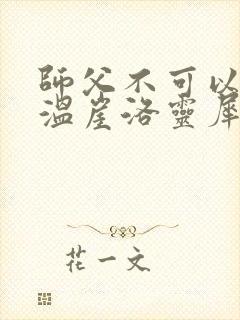 師父不可以
溫崖洛靈犀
花一文